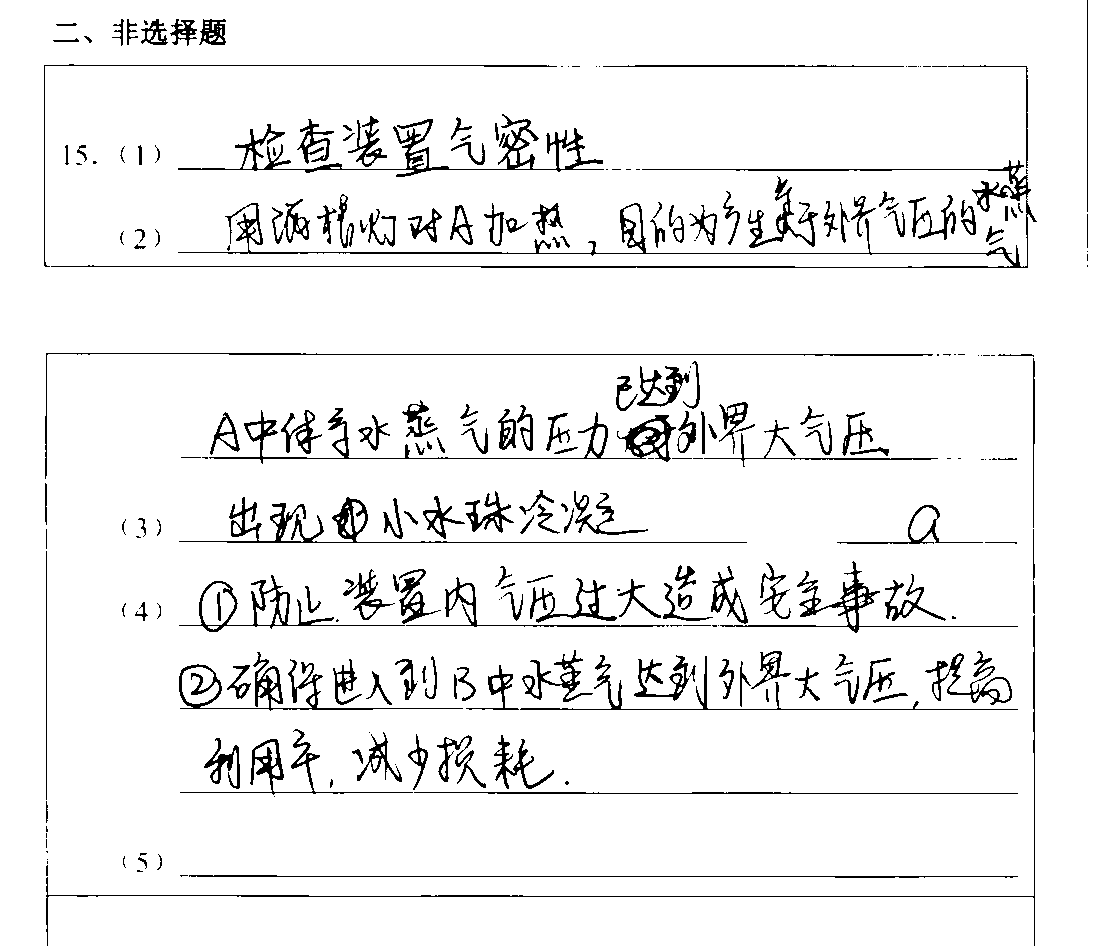 二、非选择题
15.（1） 检查装置气密性
（2） 用酒精灯对A加热，目的为产生高于外界气压的水蒸气
已达到
A中体系水蒸气的压力 外界大气压
（3） 出现 小水珠冷凝 a
（4） ①防止装置内气压过大造成安全事故.
②确保进入到B中水蒸气达到外界大气压，提高
利用率，减少损耗.
（5）